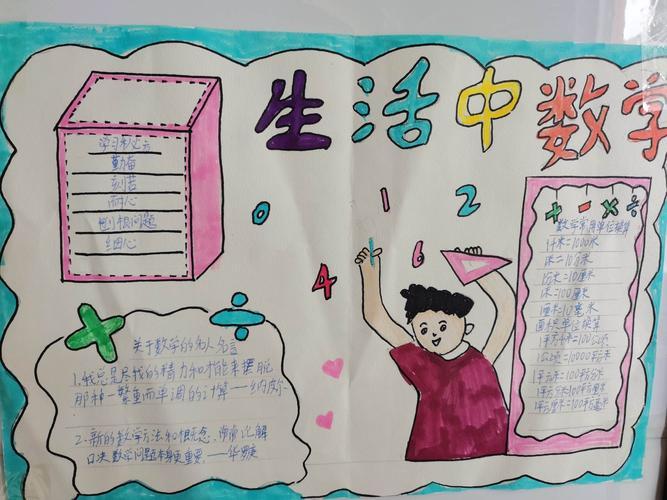 生活中数学
学习秘七方
勤奋
刻苦
耐心
刨根问题
细心
0
1
2
4
6
+ - × ÷
数学常用单位换算
1千米=1000米
1米=10分米
1分米=10厘米
1米=100厘米
1厘米=10毫米
面积单位换算
1平方千米=100公顷
1公顷=10000平方米
1平方米=100平方分米
1平方分米=100平方厘米
1平方厘米=100平方毫米
关于数学的名人名言
1.我总是尽我的精力和才能来摆脱
那种一繁重而单调的计算——纳皮尔
2.新的数学方法和概念,常常比解
口决数学问题本身更重要.——华罗庚